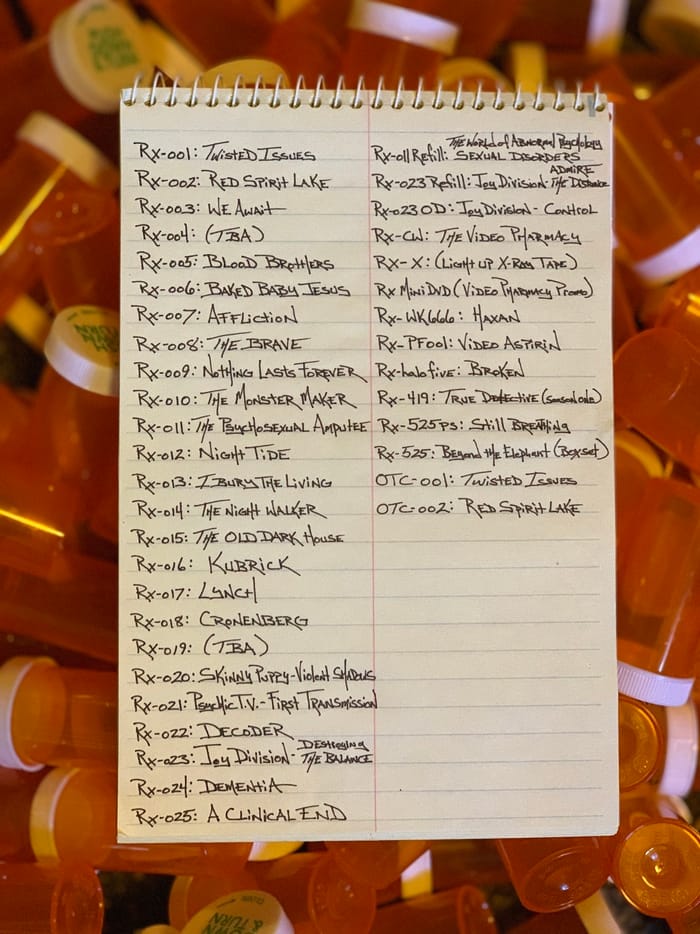 Rx-001: Twisted Issues
Rx-002: Red Spirit Lake
Rx-003: We Await
Rx-004: (TBA)
Rx-005: Blood Brothers
Rx-006: Baked Baby Jesus
Rx-007: Affliction
Rx-008: The Brave
Rx-009: Nothing Lasts Forever
Rx-010: The Monster Maker
Rx-011: The Psychosexual Amputee
Rx-012: Night Tide
Rx-013: I Bury The Living
Rx-014: The Night Walker
Rx-015: The Old Dark House
Rx-016: Kubrick
Rx-017: Lynch
Rx-018: Cronenberg
Rx-019: (TBA)
Rx-020: Skinny Puppy-Violent Shadows
Rx-021: Psychic T.V.-First Transmission
Rx-022: Decoder
Rx-023: Joy Division- Destroying The Balance
Rx-024: Dementia
Rx-025: A Clinical End
Rx-011 Refill: The World of Abnormal Psychology Sexual Disorders
Rx-023 Refill: Joy Division- Admire The Distance
Rx-023 OD: Joy Division- Control
Rx-CW: The Video Pharmacy
Rx-X: (Light up X-Ray Tape)
Rx MiniDVD (Video Pharmacy Promo)
Rx-WK666: Haxan
Rx-PF001: Video Aspirin
Rx-halo five: Broken
Rx-419: True Detective (season one)
Rx-525ps: Still Breathing
Rx-525: Beyond the Elephant (Box set)
OTC-001: Twisted Issues
OTC-002: Red Spirit Lake